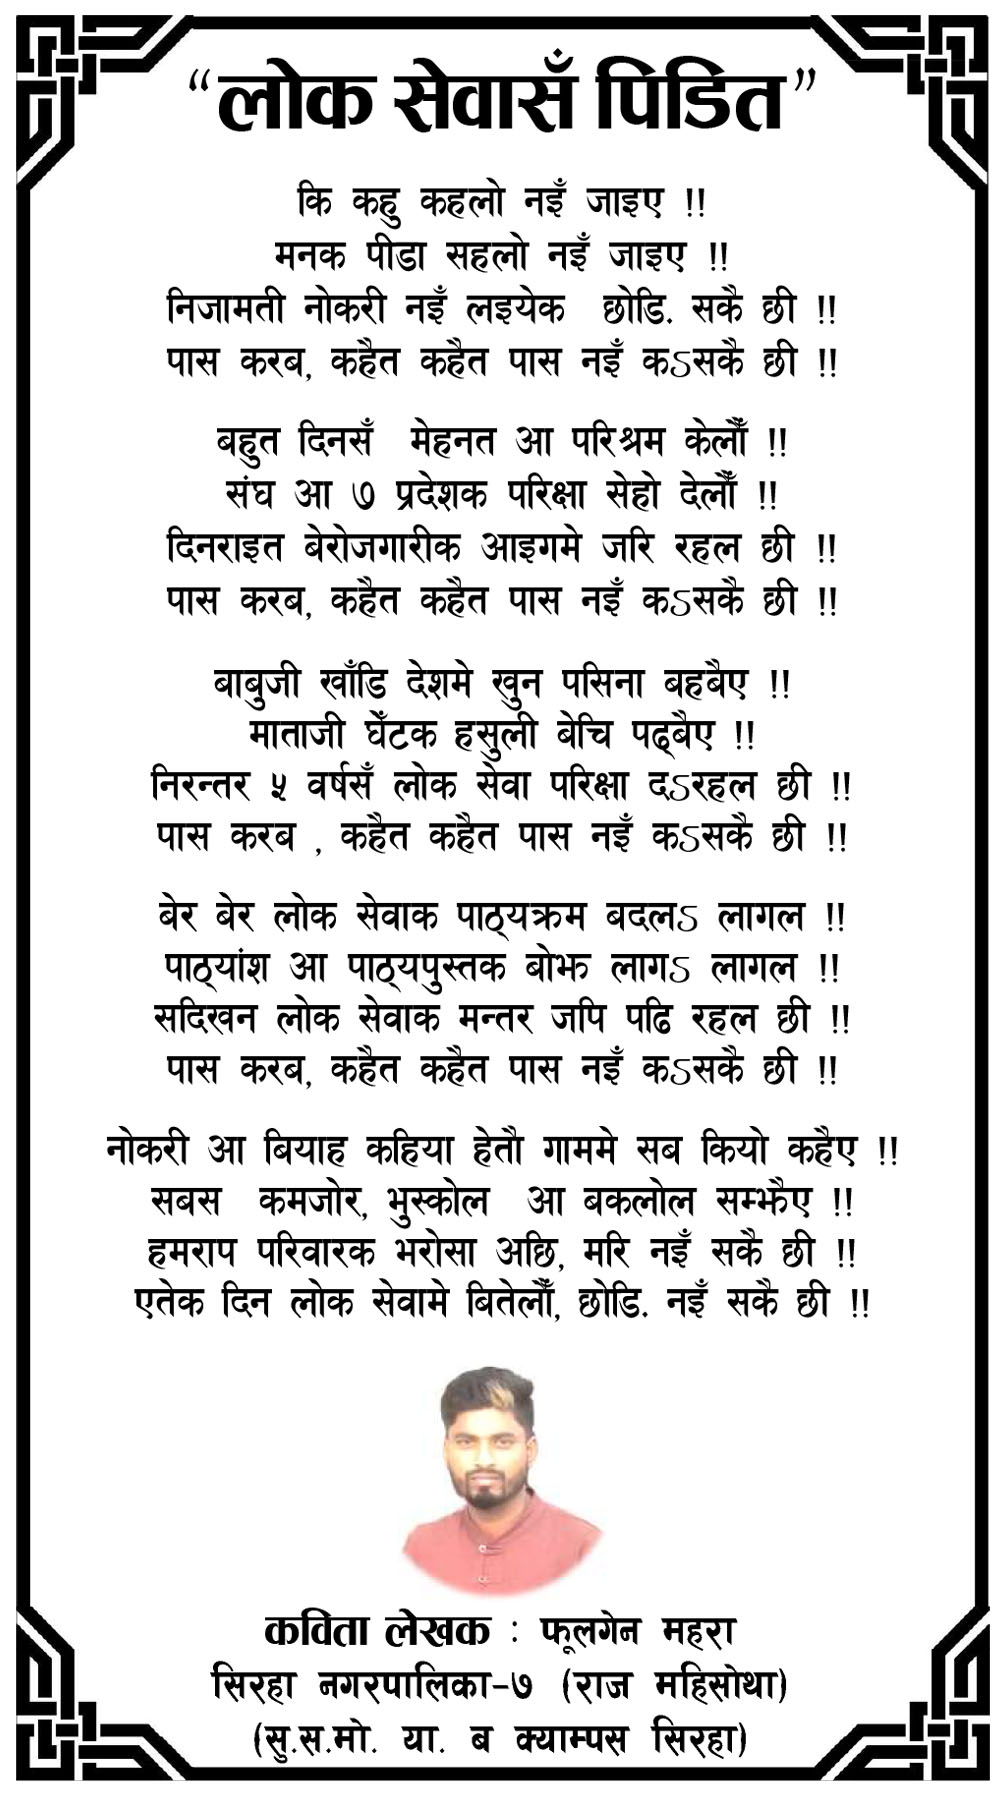 “लोक सेवासँ पिडित”
कि कहु कहलो नइँ जाइए !!
मनक पीडा सहलो नइँ जाइए !!
निजामती नोकरी नइँ लइयेक छोडि. सकै छी !!
पास करब, कहैत कहैत पास नइँ कऽसकै छी !!
बहुत दिनसँ मेहनत आ परिश्रम केलौँ !!
संघ आ ७ प्रदेशक परिक्षा सेहो देलौँ !!
दिनराइत बेरोजगारीक आइगमे जरि रहल छी !!
पास करब, कहैत कहैत पास नइँ कऽसकै छी !!
बाबुजी खाँडि देशमे खुन पसिना बहबैए !!
माताजी घेँटक हसुली बेचि पढ्बैए !!
निरन्तर ५ वर्षसँ लोक सेवा परिक्षा दऽरहल छी !!
पास करब , कहैत कहैत पास नइँ कऽसकै छी !!
बेर बेर लोक सेवाक पाठ्यक्रम बदलऽ लागल !!
पाठ्यांश आ पाठ्यपुस्तक बोझ लागऽ लागल !!
सदिखन लोक सेवाक मन्तर जपि पढि रहल छी !!
पास करब, कहैत कहैत पास नइँ कऽसकै छी !!
नोकरी आ बियाह कहिया हेतौ गाममे सब कियो कहैए !!
सबस कमजोर, भुस्कोल आ बकलोल सम्झैए !!
हमराप परिवारक भरोसा अछि, मरि नइँ सकै छी !!
एतेक दिन लोक सेवामे बितेलौँ, छोडि. नइँ सकै छी !!
कविता लेखक : फूलगेन महरा
सिरहा नगरपालिका-७ (राज महिसोथा)
(सु.स.मो. या. ब क्याम्पस सिरहा)